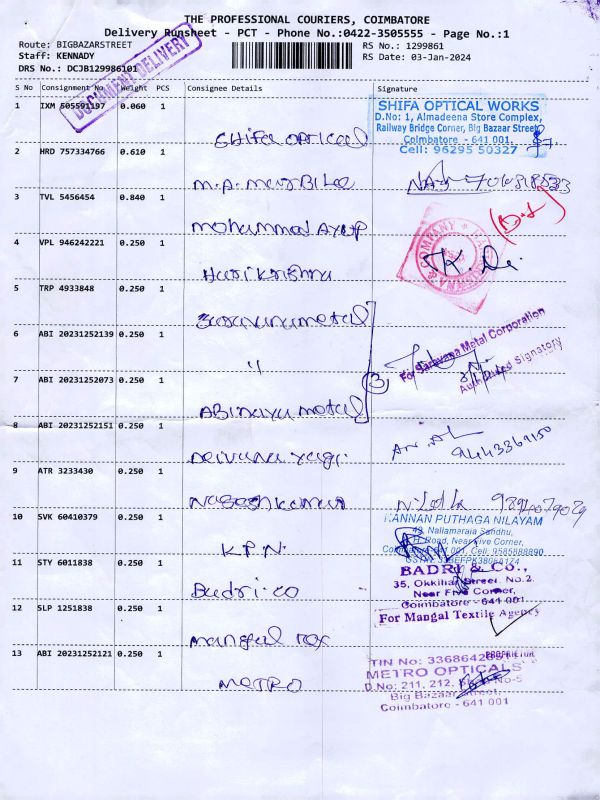 THE PROFESSIONAL COURIERS, COIMBATORE
Delivery Runsheet - PCT - Phone No.:0422-3505555 - Page No.:1
Route: BIGBAZARSTREET
RS No.: 1299861
Staff: KENNADY
RS Date: 03-Jan-2024
DRS No.: DCJB129986101
DOCUMENT DELIVERY
S No Consignment No. Weight PCS Consignee Details Signature
1 IXM 505591197 0.060 1
SHIFA OPTICAL WORKS
D.No: 1, Almadeena Store Complex,
Railway Bridge Corner, Big Bazaar Street,
Coimbatore - 641 001.
Cell: 96295 50327
SHIFA OPTICAL
2 HRD 757334766 0.610 1
3 TVL 5456454 0.840 1
Mohammad AYUP
4 VPL 946242221 0.250 1
Harikrishna
5 TRP 4933848 0.250 1
For Saravana Metal Corporation
Authorised Signatory
6 ABI 20231252139 0.250 1
"
3
7 ABI 20231252073 0.250 1
Abinaya metal
8 ABI 20231252151 0.250 1
9443369150
9 ATR 3233430 0.250 1
Nageshkumar
10 SVK 60410379 0.250 1
KANNAN PUTHAGA NILAYAM
K.P.N.
11 STY 6011838 0.250 1
BADRI & CO.,
35, Okkiliar Street, No.2,
Near Five Corner,
Coimbatore - 641 001.
Badri.co
12 SLP 1251838 0.250 1
For Mangal Textile Agency
PROPRIETOR
Mangal Tex
13 ABI 20231252121 0.250 1
METRO OPTICALS
Big Bazaar Street,
Coimbatore - 641 001
METRO